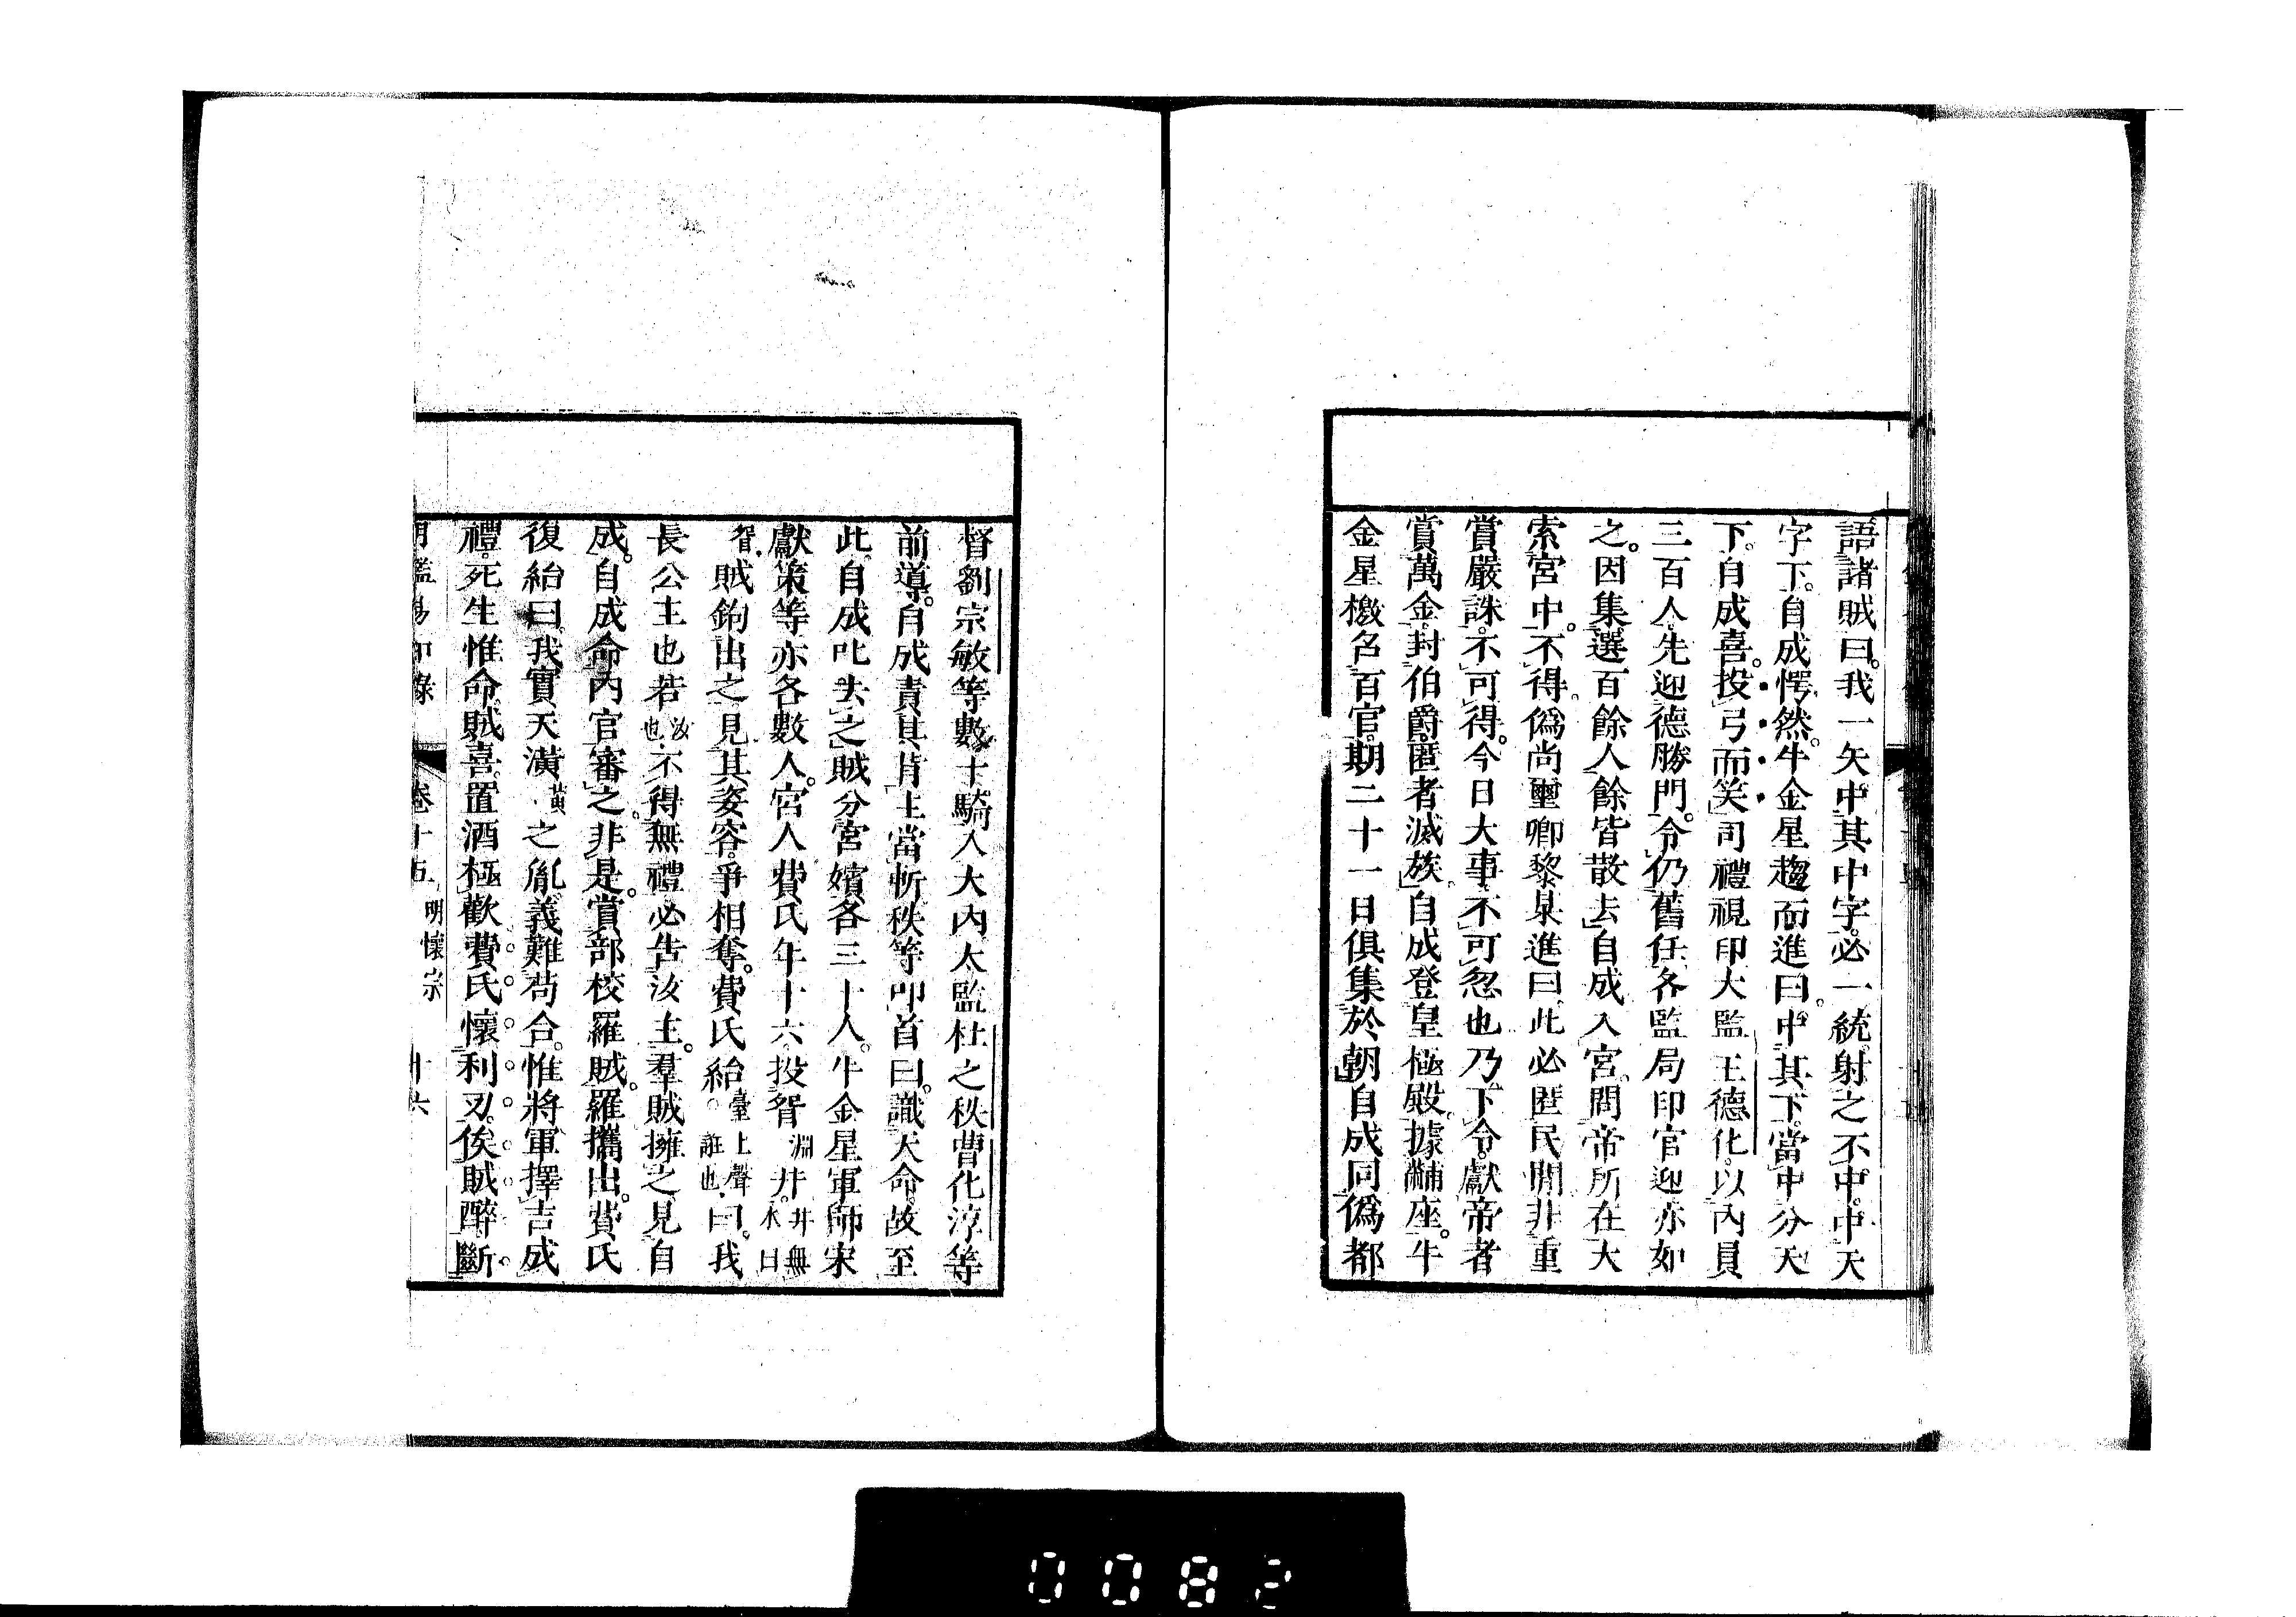 語諸賊曰。我一矢中其中字。必一統。射之不中。中天
字下。自成愕然。牛金星趨而進曰。中其下。當中分天
下。自成喜。投弓而笑。司禮視印大監王德化。以內員
三百人。先迎德勝門。令仍舊任。各監局印官迎亦如
之。因集選百餘人。餘皆散去。自成入宮。問帝所在。大
索宮中。不得。偽尚璽卿黎㫤進曰。此必匿民間。非重
賞嚴誅。不可得。今日大事。不可忽也。乃下令。獻帝者
賞萬金。封伯爵。匿者滅族。自成登皇極殿。據黼座。牛
金星檄召百官。期二十一日俱集於朝。自成同偽都
督劉宗敏等數十騎入大內。大監杜之秩曹化淳等
前導。自成責其背主當斬。秩等叩首曰。識天命。故至
此。自成叱去之。賊分宮嬪各三十人。牛金星軍師宋
獻策等亦各數人。宮人費氏年十六。投眢淵井。井無水曰
眢。賊鉤出之。見其姿容。爭相奪。費氏紿臺上聲。誑也。曰。我
長公主也。若汝也。不得無禮。必告汝主。羣賊擁之。見自
成。自成命內官審之。非是。賞部校羅賊。羅攜出。費氏
復紿曰。我實天潢黃。之胤。義難苟合。惟將軍擇吉成
禮。死生惟命。賊喜。置酒極歡。費氏懷利刃。俟賊醉。斷
明鑑易知錄 卷十五 明懷宗 十六
0082